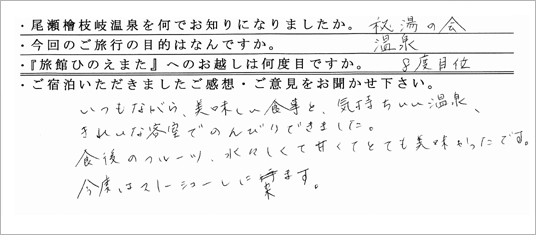 ・尾瀬檜枝岐温泉を何でお知りになりましたか。 秘湯の会
・今回のご旅行の目的はなんですか。 温泉
・『旅館ひのえまた』へのお越しは何度目ですか。 8度目位
・ご宿泊いただきましたご感想・ご意見をお聞かせ下さい。
いつもながら、美味しい食事と、気持ちいい温泉、
きれいな客室でのんびりできました。
食後のフルーツ、水々しくて甘くてとても美味かったです。
今度はスノーシューしに来ます。